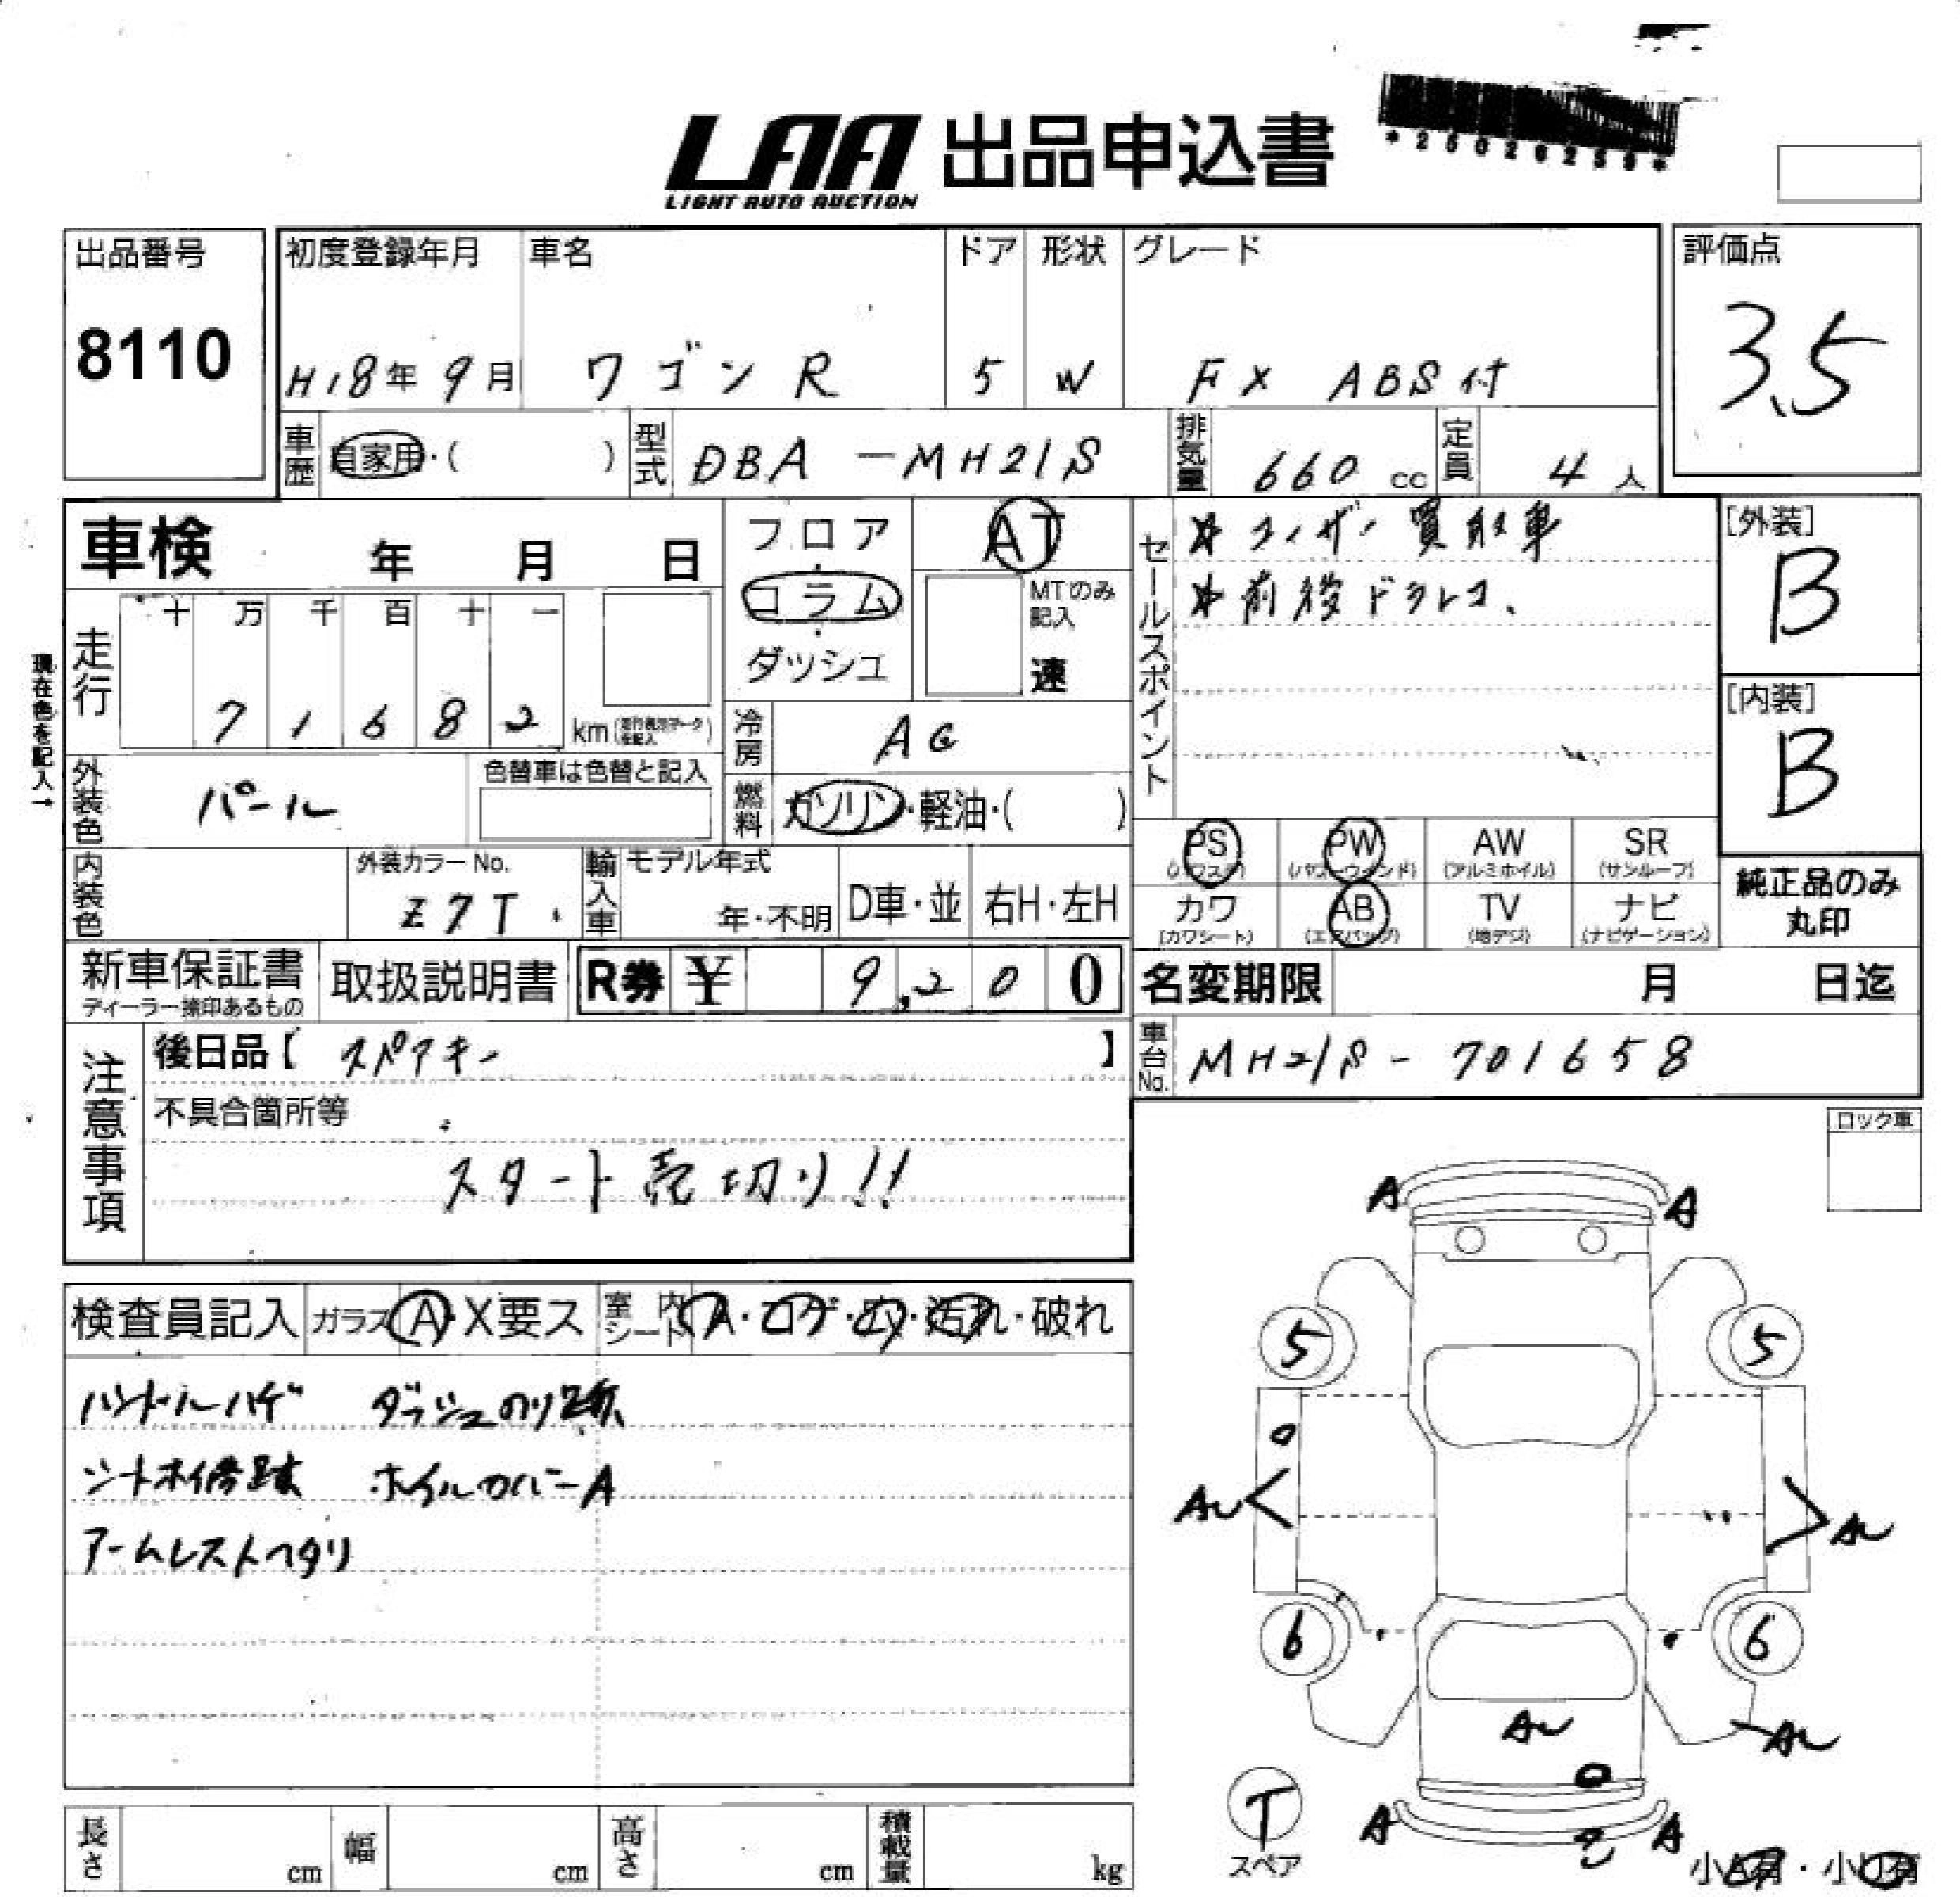 LAA 出品申込書
LIGHT AUTO AUCTION
出品番号
8110
初度登録年月 車名 ドア 形状 グレード
H18年 9月 ワゴンR 5 W FX ABS付
評価点
3.5
車歴 自家用・( ) 型式 DBA-MH21S 排気量 660 cc 定員 4 人
車検 年 月 日
フロア・コラム・ダッシュ
AT
MTのみ記入
速
セールスポイント
☆ユーザー買取車
☆前後ドラレコ.
[外装]
B
[内装]
B
現在色を記入→
走行
十 万 千 百 十 一
7 1 6 8 2 km
冷房 AC
外装色 パール
色替車は色替と記入
燃料 ガソリン・軽油・( )
内装色
外装カラーNo.
Z7T
輸入車
モデル年式
年・不明
D車・並
右H・左H
PS PW AW SR
(パワステ) (パワーウインド) (アルミホイル) (サンルーフ)
カワ AB TV ナビ
(カワシート) (エアバッグ) (地デジ) (ナビゲーション)
純正品のみ
丸印
新車保証書
ディーラー捺印あるもの
取扱説明書
R券 ¥ 9,200
名変期限 月 日迄
注意事項
後日品【 スペアキー 】
車台No. MH21S-701658
不具合箇所等
スタート売切り!!
ロック車
検査員記入 ガラス A・X要ス 室内シート A・コゲ・穴・汚れ・破れ
ハンドルハゲ ダッシュのり跡
シートホ修跡 ホイルカバーA
アームレストヘタリ
A A
5 5
AU AU
6 6
AU AU
A A
T
スペア
長さ cm 幅 cm 高さ cm 積載量 kg